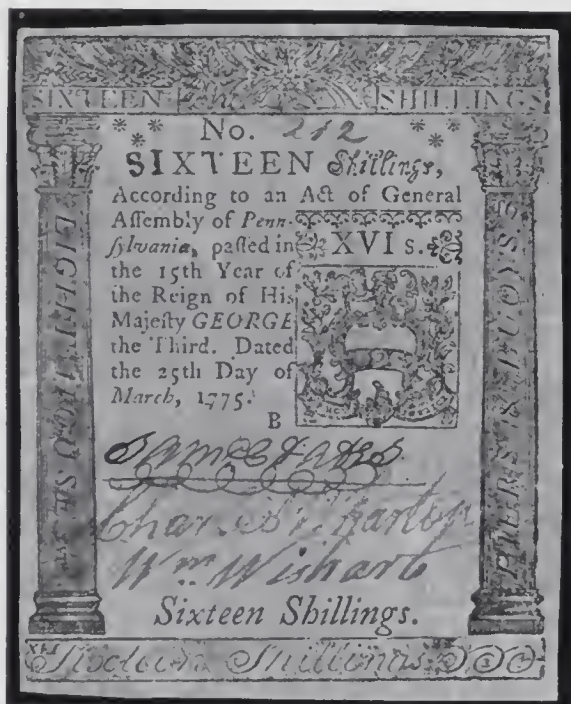 SIXTEEN SHILLINGS
No. 212
SIXTEEN Shillings,
According to an Act of General
Aſſembly of Penn-
ſylvania, paſſed in
the 15th Year of
the Reign of His
Majeſty GEORGE
the Third. Dated
the 25th Day of
March, 1775.
XVI s.
B
Chas. Wharton
Wm. Wishart
Sixteen Shillings.
XVI
Sixteen Shillings